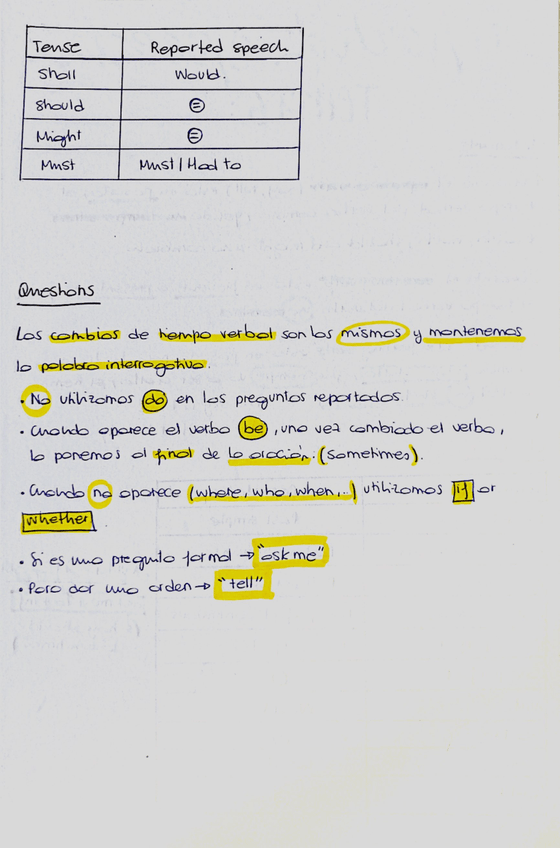 Tense Reported speech
Shall Would.
Should =
Might =
Must Must / Had to
Questions
Los cambios de tiempo verbal son los mismos y mantenemos
la palabra interrogativa.
• No utilizamos do en las preguntas reportadas.
• Cuando aparece el verbo be, una vez cambiado el verbo,
lo ponemos al final de la oración. (sometimes).
• Cuando no aparece (where, who, when,..) utilizamos if or
whether
• Si es una pregunta formal → "ask me"
• Para dar una orden → "tell"